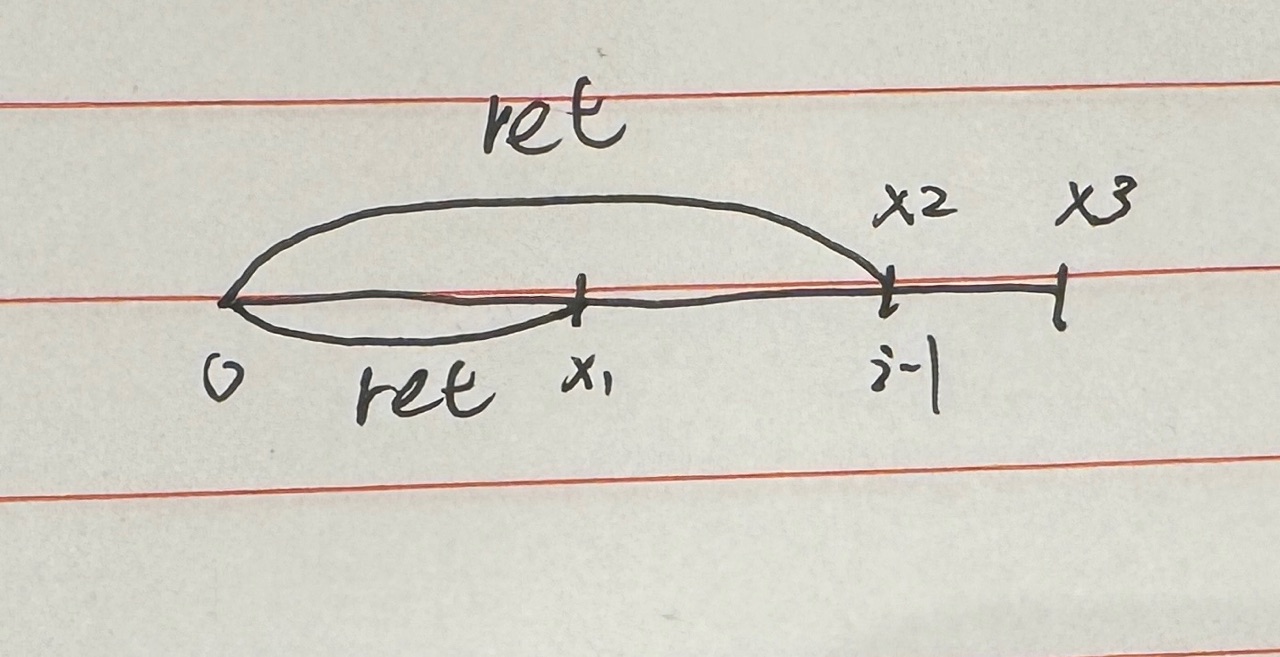 ret
x2 x3
0 ret x₁ i-1